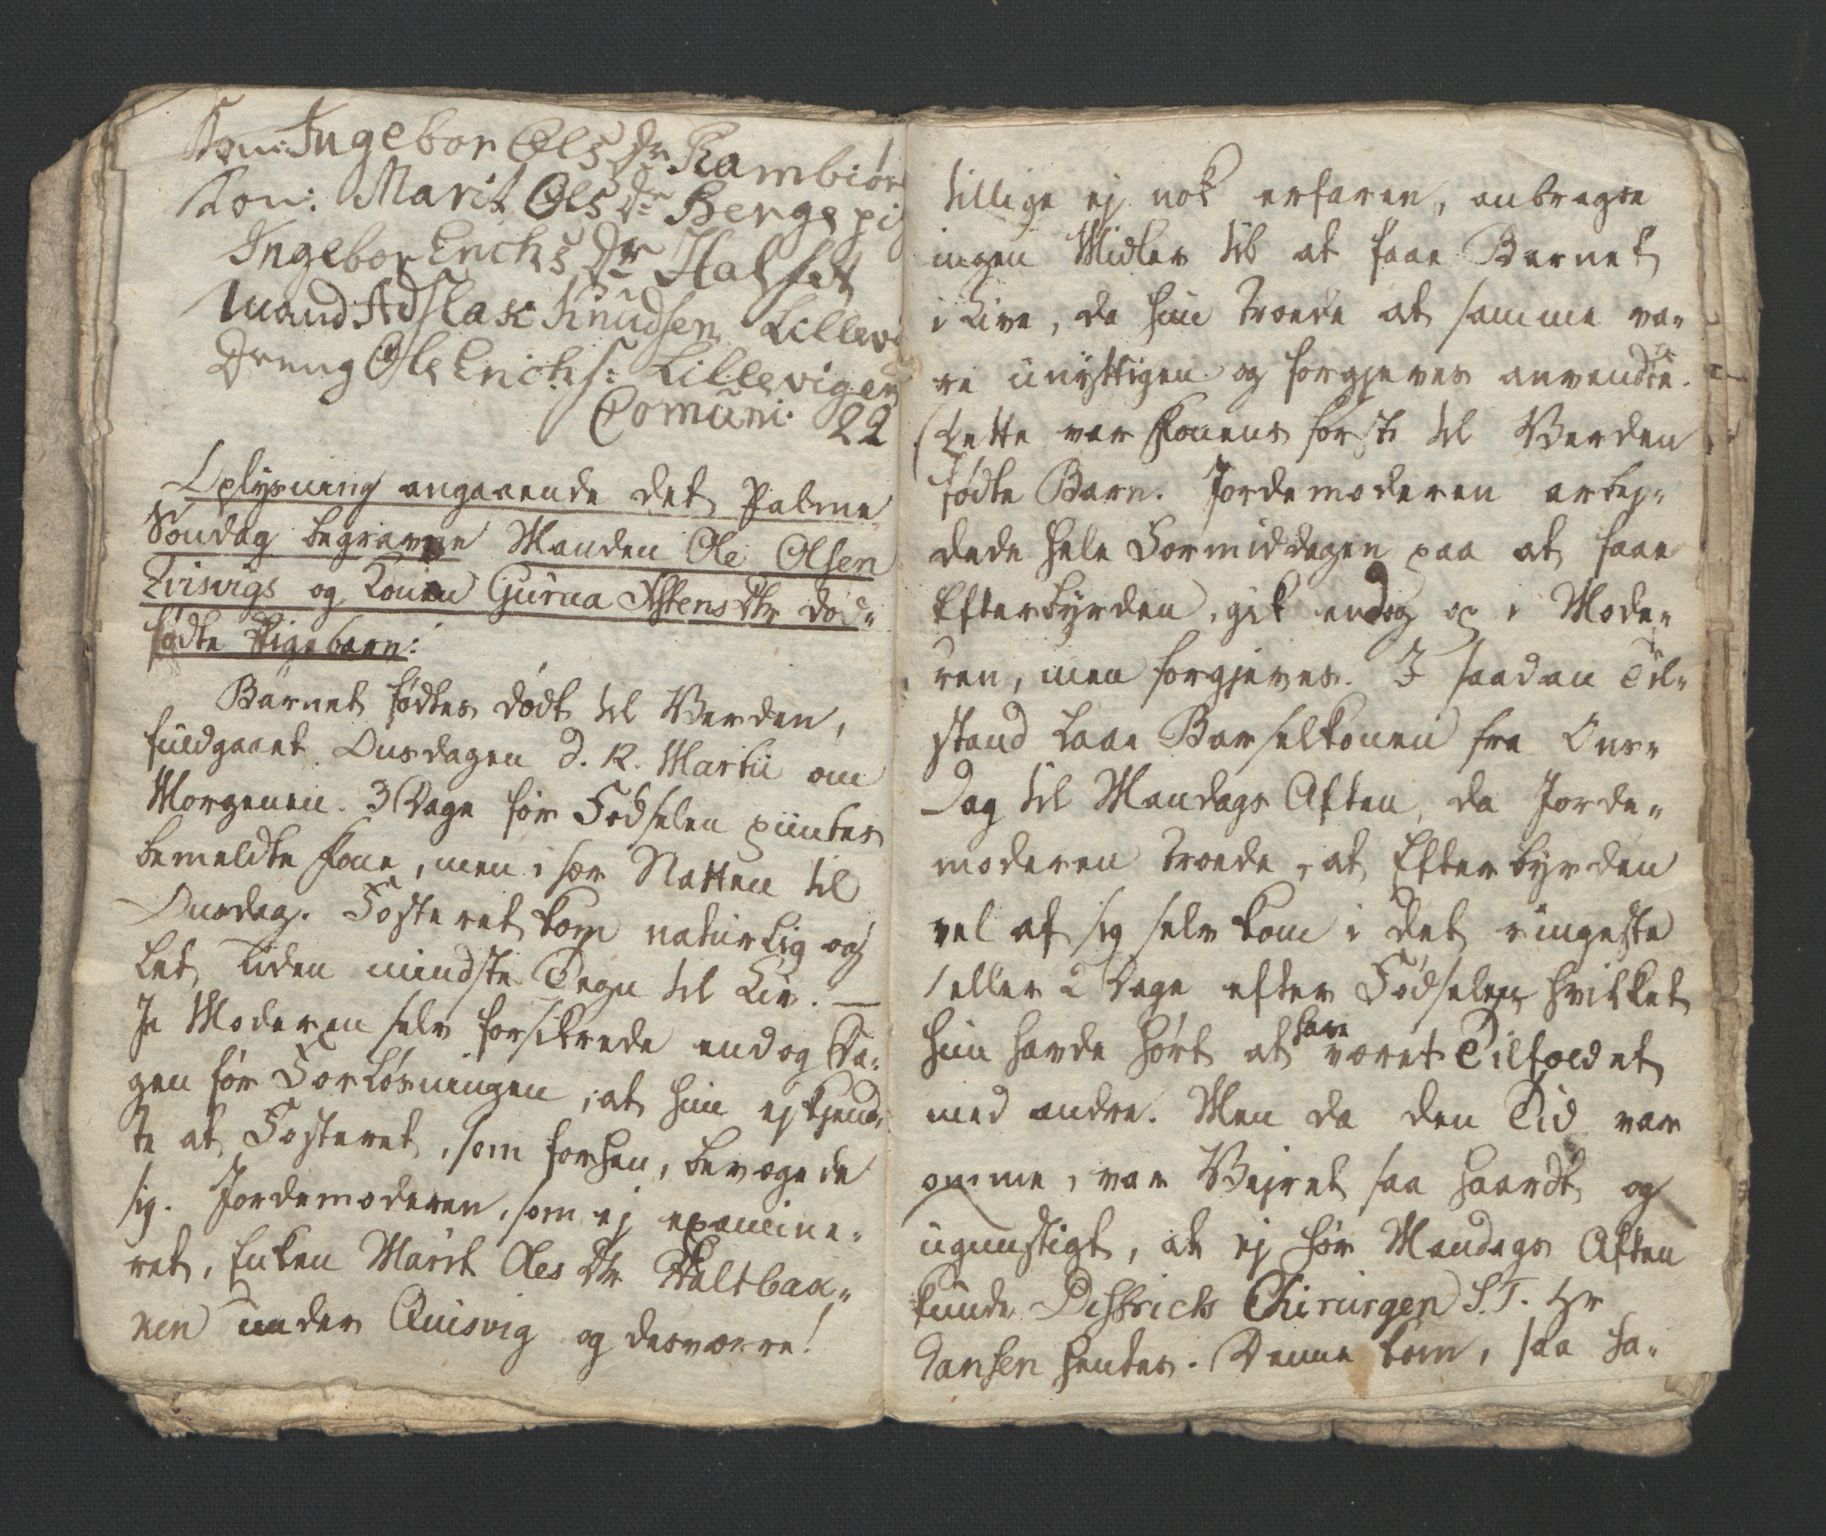 Kon: Ingebor Ols Dr Rambiør
Kon: Marit Ols Dr Berge pi
Ingebor Erichs Dr Halset
Mand Adslak Knudsen Lillev
Dreng Ole Erichs: Lillevigen
Comuni: 22
Oplysning angaaende det Palme
Søndag begravne Manden Ole Olsen
Qvisvigs og Konen Gurna Astens Dtr død-
fødte Pigebarn:
Barnet fødtes dødt til Verden,
fuldgaaet Onsdagen d. 12. Martii om
Morgenen. 3 Dage før Fødselen piintes
bemeldte Kone, men i sær Natten til
Onsdag. Fosteret kom naturlig og
let uden mindste Tegn til Liv. —
Ja Moderen selv forsikrede endog Da-
gen før Forløsningen, at hun ej kjend-
te at Fosteret, som forhen, bevægede
sig. Jordemoderen, som ej examine-
ret, Enken Marit Oles Dtr Haltbak-
ken under Quisvig og desværre!
tillige ej nok erfaren, anbragte
ingen Midler til at faae Barnet
i Live, da hun troede at samme va-
re unyttigen og forgjeves anvendte.
Dette var Konens første til Verden
fødte Barn. Jordemoderen arbej-
dede hele Formiddagen paa at faae
Efterbyrden, gik endog op i Mode-
ren, men forgjeves. I saadan Til-
stand laae Barselkonen fra Ons-
Dag til Mandags Aften, da Jorde-
moderen troede, at Efterbyrden
vel af sig selv kom i det ringeste
1 eller 2 Dage efter Fødselen, hvilket
hun havde hørt at have været Tilfældet
med andre. Men da den Tid var
omme, var Vejret saa haardt og
ugunstigt, at ej før Mandags Aften
kunde Districts Chirurgen S. T. Hr
Hansen hentes. Denne kom, saa ha-